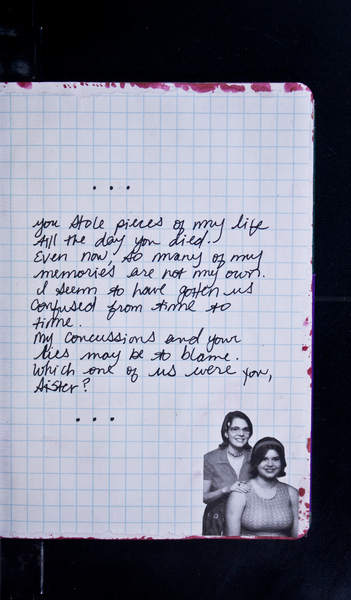 ...
you stole pieces of my life
till the day you died.
Even now, so many of my
memories are not my own.
I seem to have gotten us
confused from time to
time.
My concussions and your
lies may be to blame.
Which one of us were you,
sister?
...